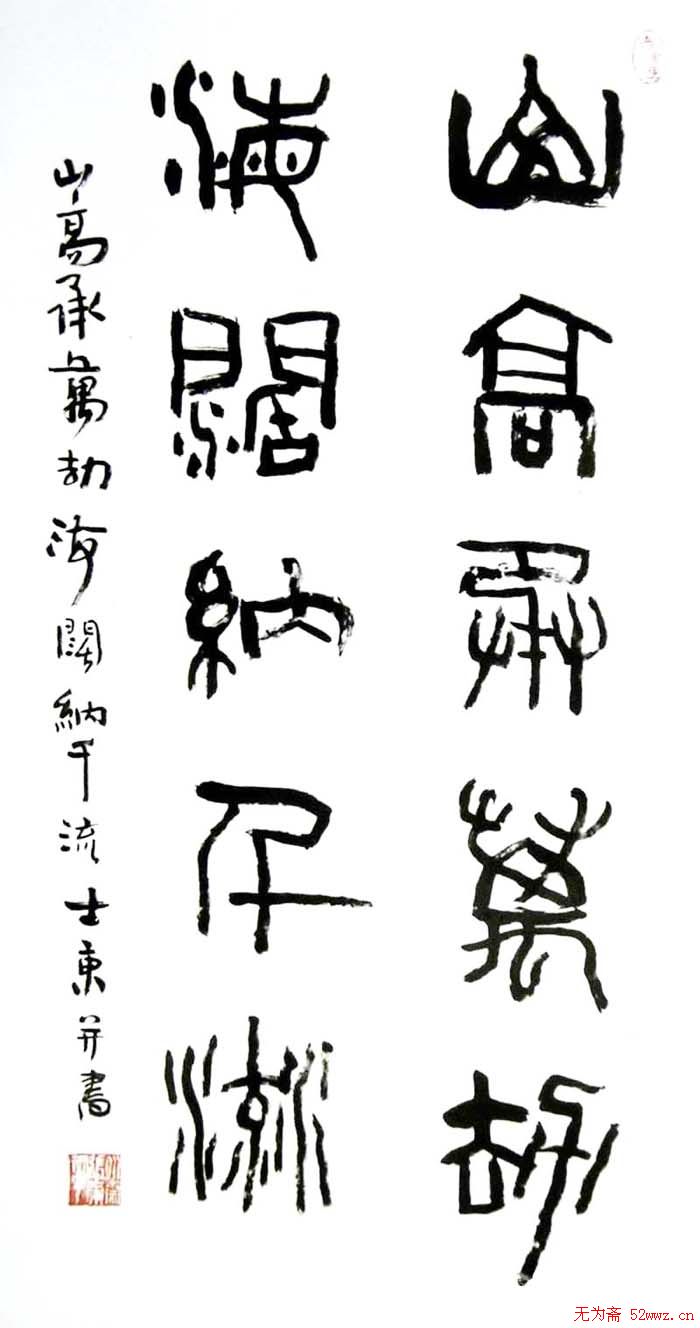 山高承萬劫
海闊納千流
山高承萬劫海闊納千流士東并書
无为斋 52wwz.cn